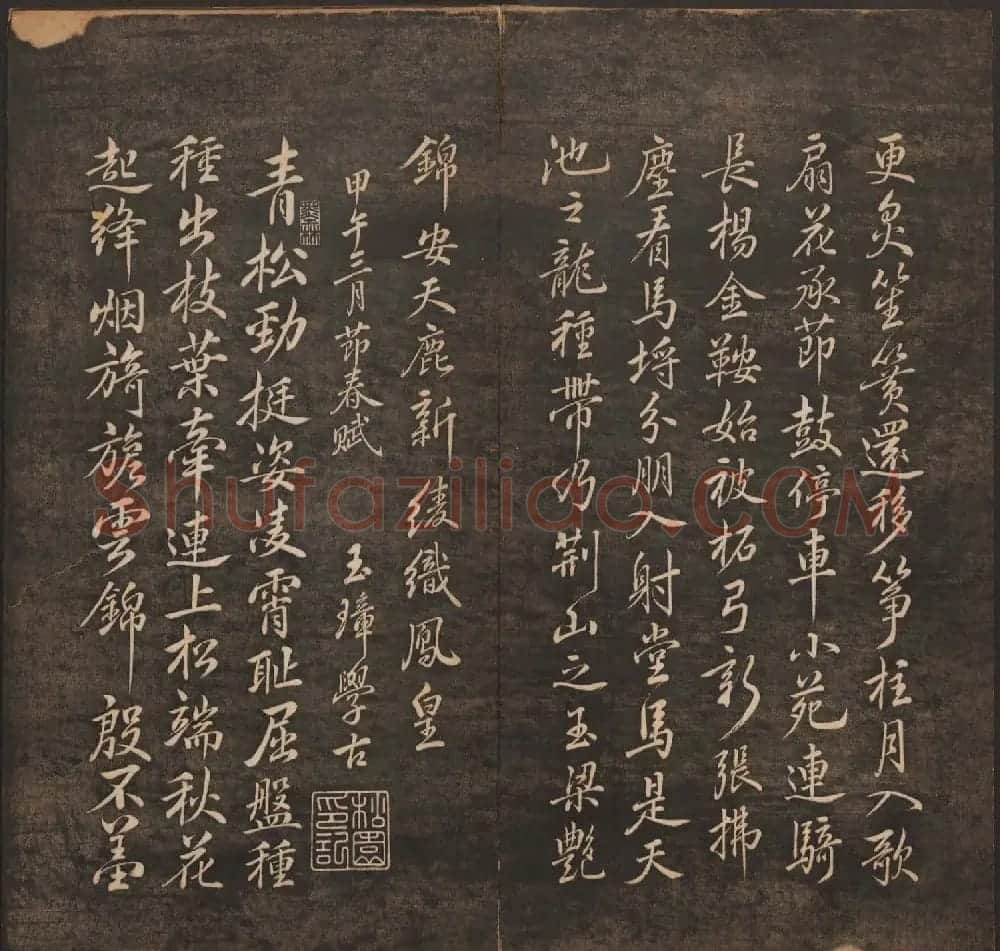 更炙笙簧還移筝柱月入歌
扇花承莭鼓停車小苑連騎
長楊金鞍始被柘弓新張拂
塵看馬埒分朋入射堂馬是天
池之龍種帶乃荆山之玉梁艶
錦安天鹿新綾織鳳皇
甲午三月莭春賦 玉璋學古
松園印記
青松勁挺姿凌霄耻屈盤種
種出枝葉牽連上松端秋花
起絳烟旖旎雲錦殷不羞
Shufaziliao.COM